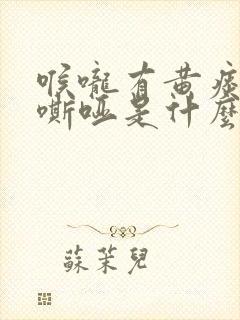 喉嚨有黃痰
嘶啞是什麼
蘇茉兒